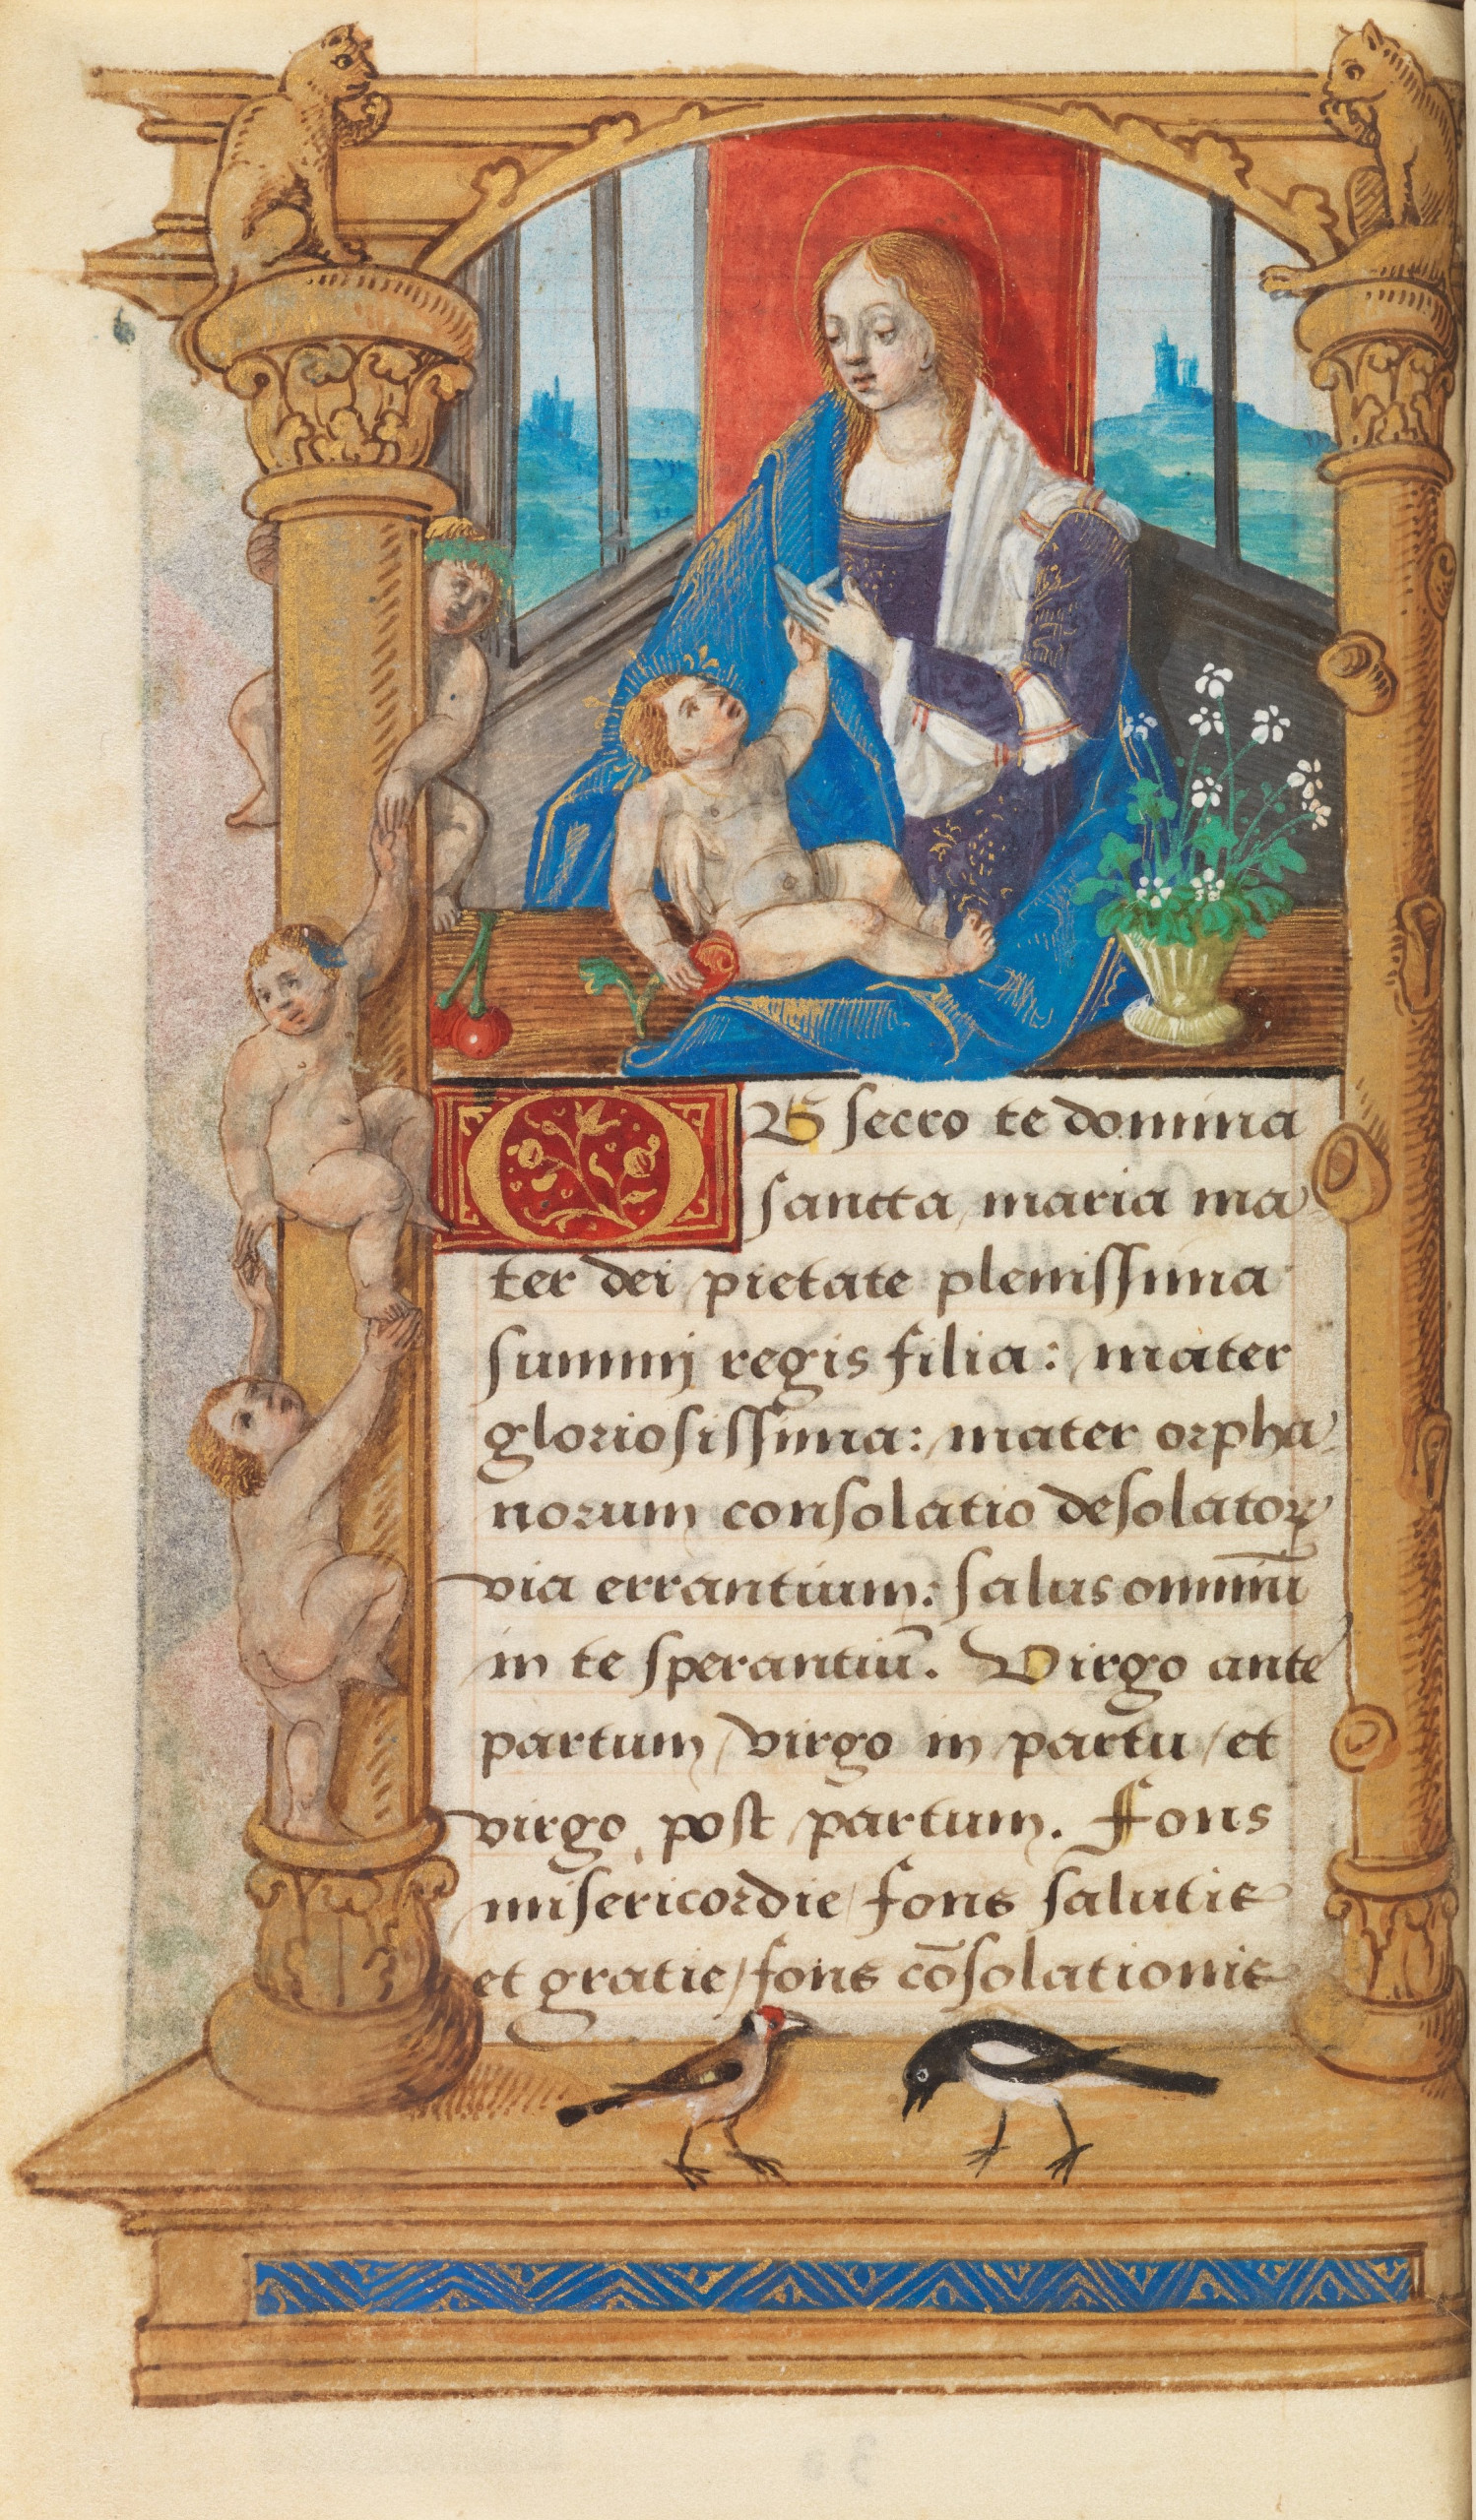 OB secro te domina
sancta maria ma
ter dei pietate plenissima
summi regis filia: mater
gloriosissima: mater orpha
norum consolatio desolatoꝝ
via errantium: salus omniū
in te sperantiū. Virgo ante
partum / virgo in partu / et
virgo post partum. Fons
misericordie / fons salutis
et gratie / fons cōsolationis